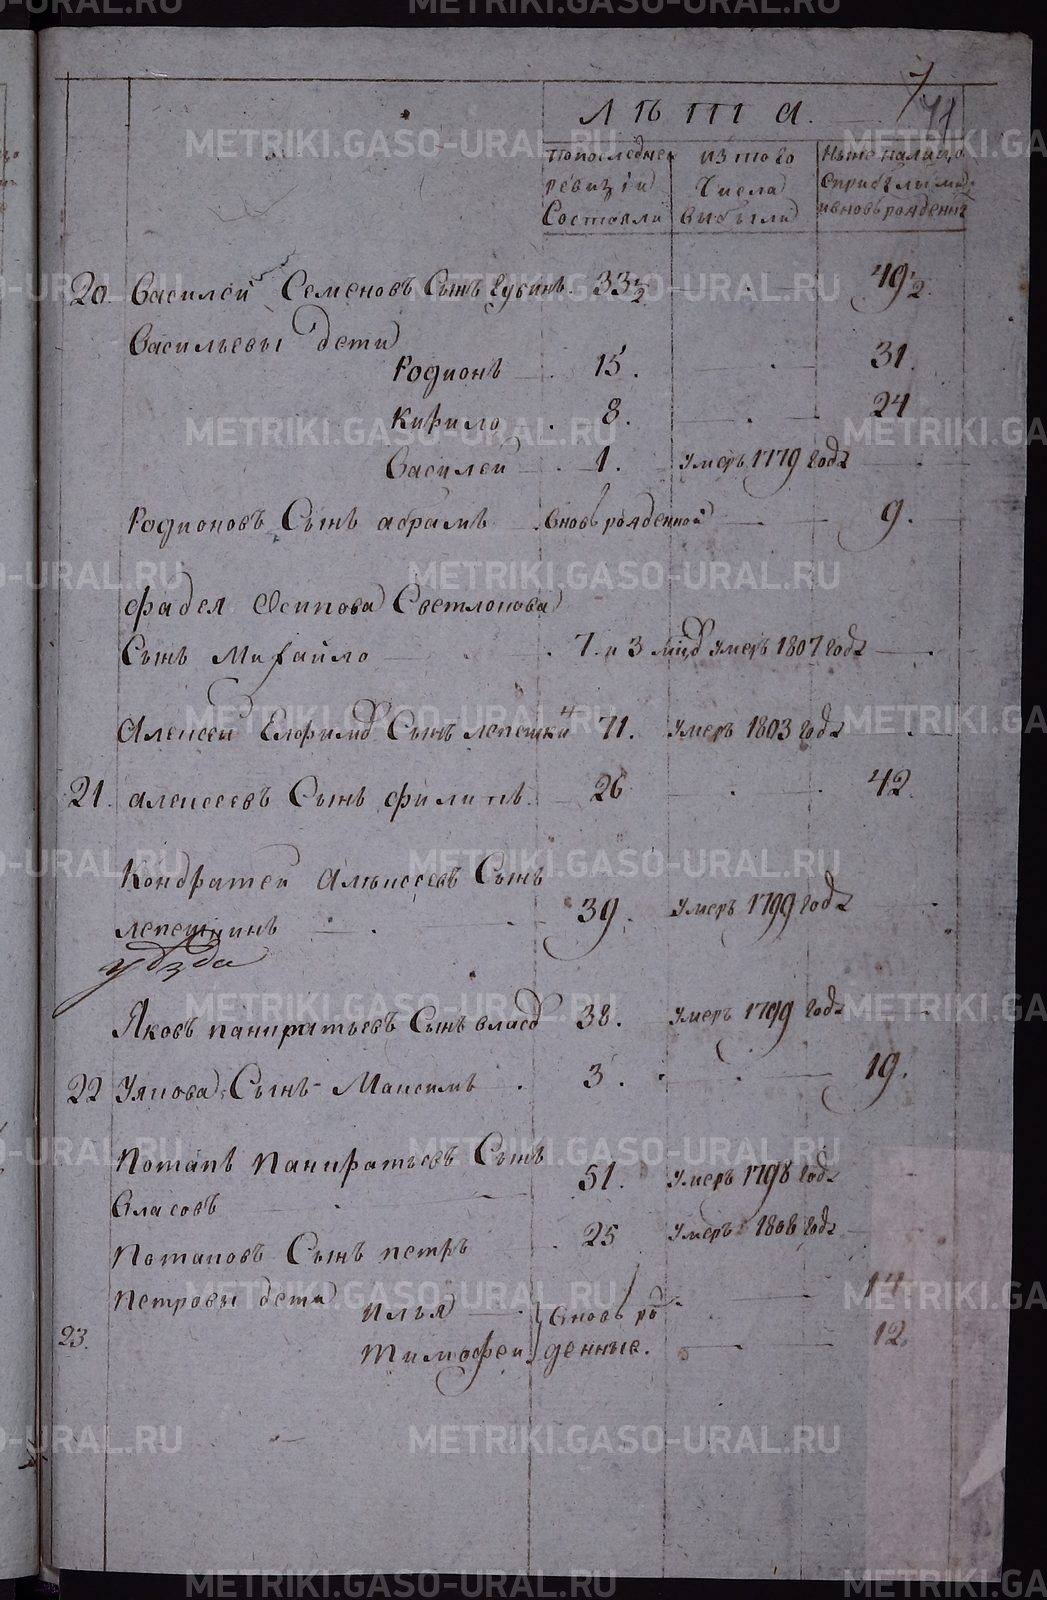 7
71
Лѣта.
попоследней ревизіи Состояли
изтого Числа выбыли
Ныне налицо Сприбылыми ивновь рожденными
20. Василей Семеновъ Сынъ Губинъ. 33½ 49½.
Васильевы дети
Родионъ 15. 31.
Кирило 8. 24
Василей 1. умеръ 1779 года
Родионовъ Сынъ абрамъ вновь рожденной 9.
фадея Осипова Светлокова
Сынъ Михайло 7. и 3 мцд умеръ 1807 года
Алексей Елфимд Сынъ лепешкин 71. умеръ 1803 года
21. алексеевъ Сынъ филипъ. 26 42.
Кондратей алексеевъ Сынъ
лепешкинъ 39. умеръ 1799 года
Яковъ панкратьевъ Сынъ власд 38. умеръ 1799 года
22 Уякова Сынъ Максимъ 3. 19.
Потапъ Панкратьевъ Сынъ
Власовъ 51. умеръ 1798 года
Потаповъ Сынъ петръ 25 умеръ 1808 года
Петровы дети
Илья вновь ро 14
23. Тимофеи денные. 12.
METRIKI.GASO-URAL.RU